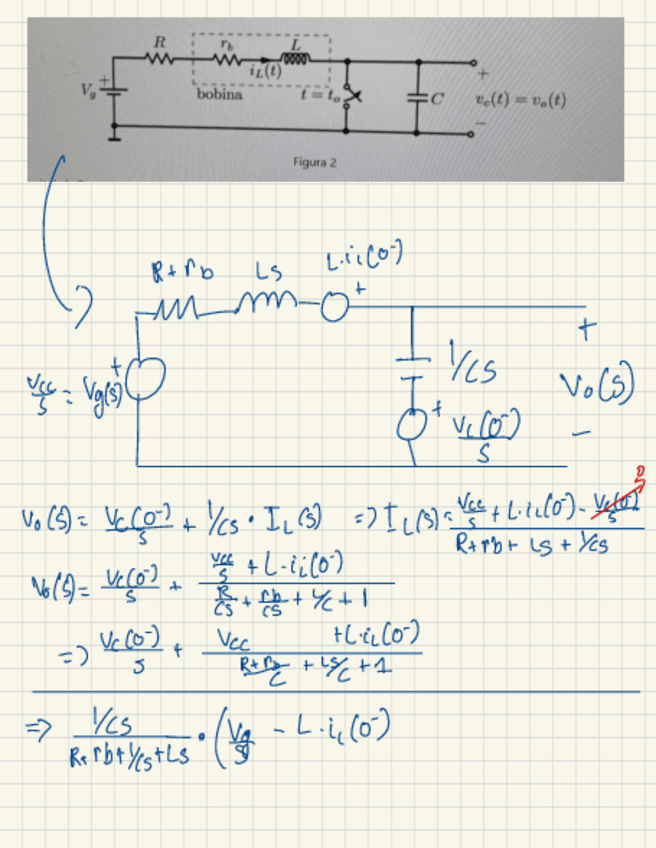 R r_b L
i_L(t)
V_g + bobina t = t_o C + v_c(t) = v_o(t) −
Figura 2
R+rb Ls L·i_L(0⁻)
+
Vcc/s = Vg(s) + 1/CS + Vo(s) −
+ Vc(0⁻)/s
Vo(s) = Vc(0⁻)/s + 1/CS · I_L(s) => I_L(s) = (Vcc/s + L·i_L(0⁻) - Vc(0⁻)/s) / (R+rb+Ls+1/CS) 0
Vo(s) = Vc(0⁻)/s + (Vcc/s + L·i_L(0⁻)) / (R/CS + rb/CS + 1/C + 1)
=> Vc(0⁻)/s + (Vcc + L·i_L(0⁻)) / (R+rb/C + Ls/C + 1)
=> (1/CS) / (R+rb+1/CS+Ls) · (Vg/s - L·i_L(0⁻)